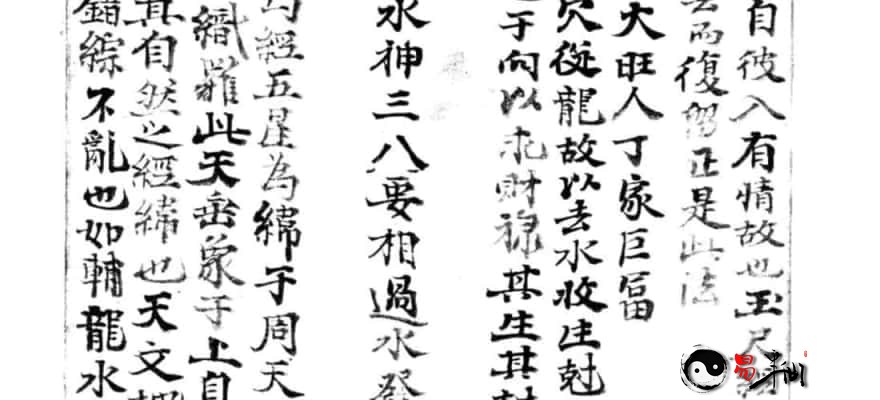 自彼入有情故也玉尺經
去而復留正是此法
大旺人丁家巨富
穴從龍故以去水收生尅
于向以求財祿其生其尅
水神三八要相過水發
為經五星為緯于周天
織羅此天垂象于上自
其自然之經緯也天文
錯綜不亂也如輔龍水
易